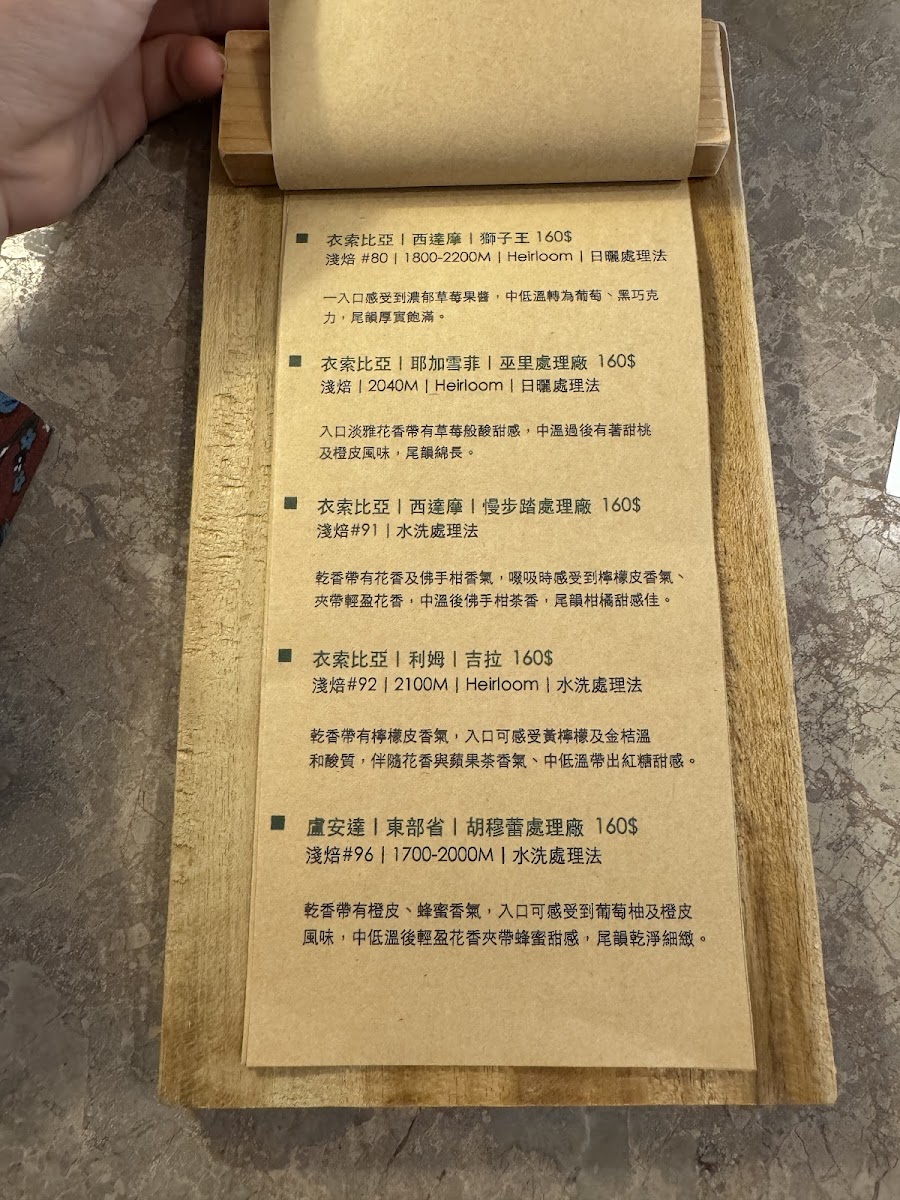 ■ 衣索比亞 | 西達摩 | 獅子王 160$
淺焙 #80 | 1800-2200M | Heirloom | 日曬處理法
一入口感受到濃郁草莓果醬,中低溫轉為葡萄、黑巧克
力,尾韻厚實飽滿。
■ 衣索比亞 | 耶加雪菲 | 巫里處理廠 160$
淺焙 | 2040M | Heirloom | 日曬處理法
入口淡雅花香帶有草莓般酸甜感,中溫過後有著甜桃
及橙皮風味,尾韻綿長。
■ 衣索比亞 | 西達摩 | 慢步踏處理廠 160$
淺焙#91 | 水洗處理法
乾香帶有花香及佛手柑香氣,啜吸時感受到檸檬皮香氣、
夾帶輕盈花香,中溫後佛手柑茶香,尾韻柑橘甜感佳。
■ 衣索比亞 | 利姆 | 吉拉 160$
淺焙#92 | 2100M | Heirloom | 水洗處理法
乾香帶有檸檬皮香氣,入口可感受黃檸檬及金桔溫
和酸質,伴隨花香與蘋果茶香氣、中低溫帶出紅糖甜感。
■ 盧安達 | 東部省 | 胡穆蕾處理廠 160$
淺焙#96 | 1700-2000M | 水洗處理法
乾香帶有橙皮、蜂蜜香氣,入口可感受到葡萄柚及橙皮
風味,中低溫後輕盈花香夾帶蜂蜜甜感,尾韻乾淨細緻。